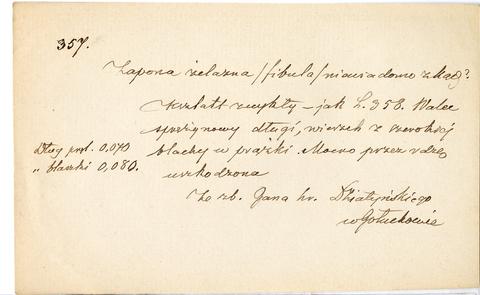 357.
Zapona żelazna /fibula/ niewiadomo zkąd?
Kształt zwykły – jak L. 358. Walec
sprężynowy długi, wierzch z szerokiej
Dług. pręt. 0,070 blachy w prążki. Mocno przez rdzę
„ blaszki 0,080. uszkodzona
Ze zb. Jana hr. Działyńskiego
w Gołuchowie